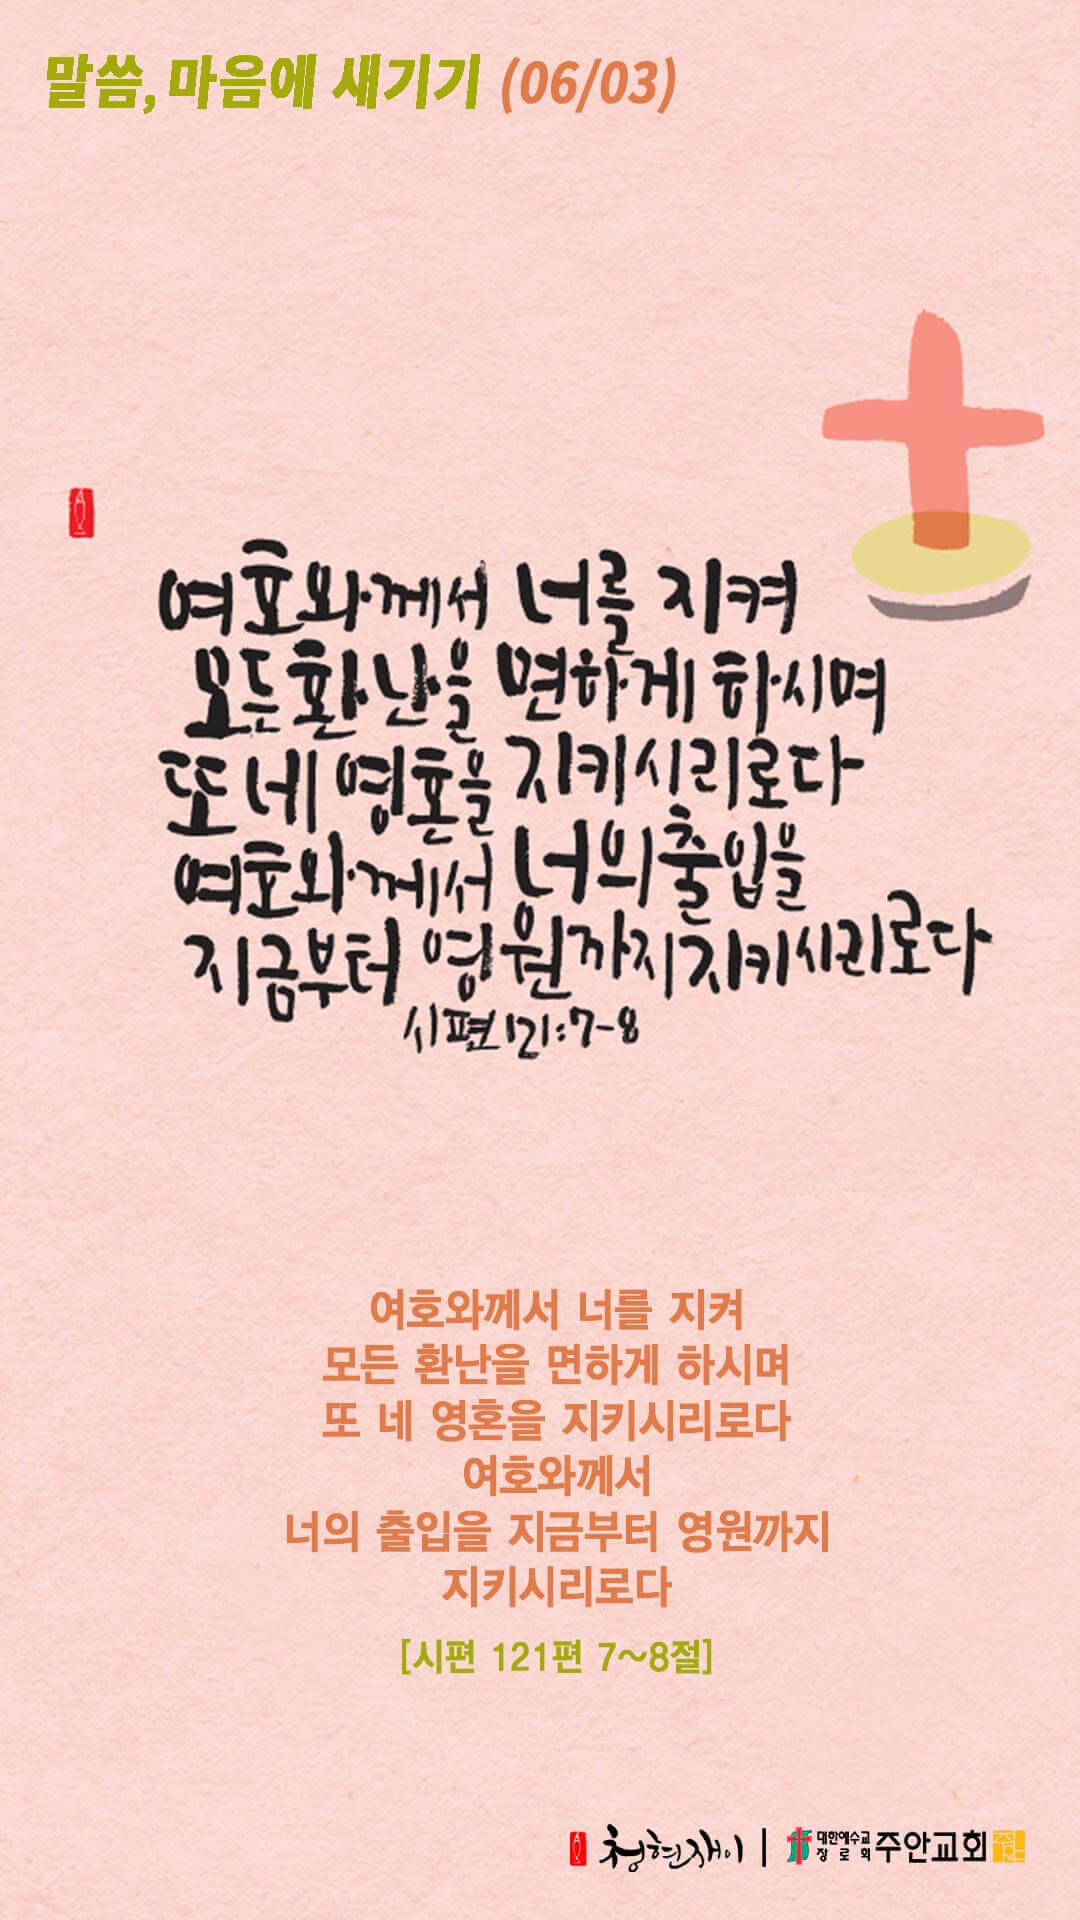 말씀, 마음에 새기기 (06/03)
여호와께서 너를 지켜
모든 환난을 면하게 하시며
또 네 영혼을 지키시리로다
여호와께서 너의 출입을
지금부터 영원까지 지키시리로다
시편 121:7-8
여호와께서 너를 지켜
모든 환난을 면하게 하시며
또 네 영혼을 지키시리로다
여호와께서
너의 출입을 지금부터 영원까지
지키시리로다
[시편 121편 7~8절]
청현재이 | 대한예수교 장로회 주안교회